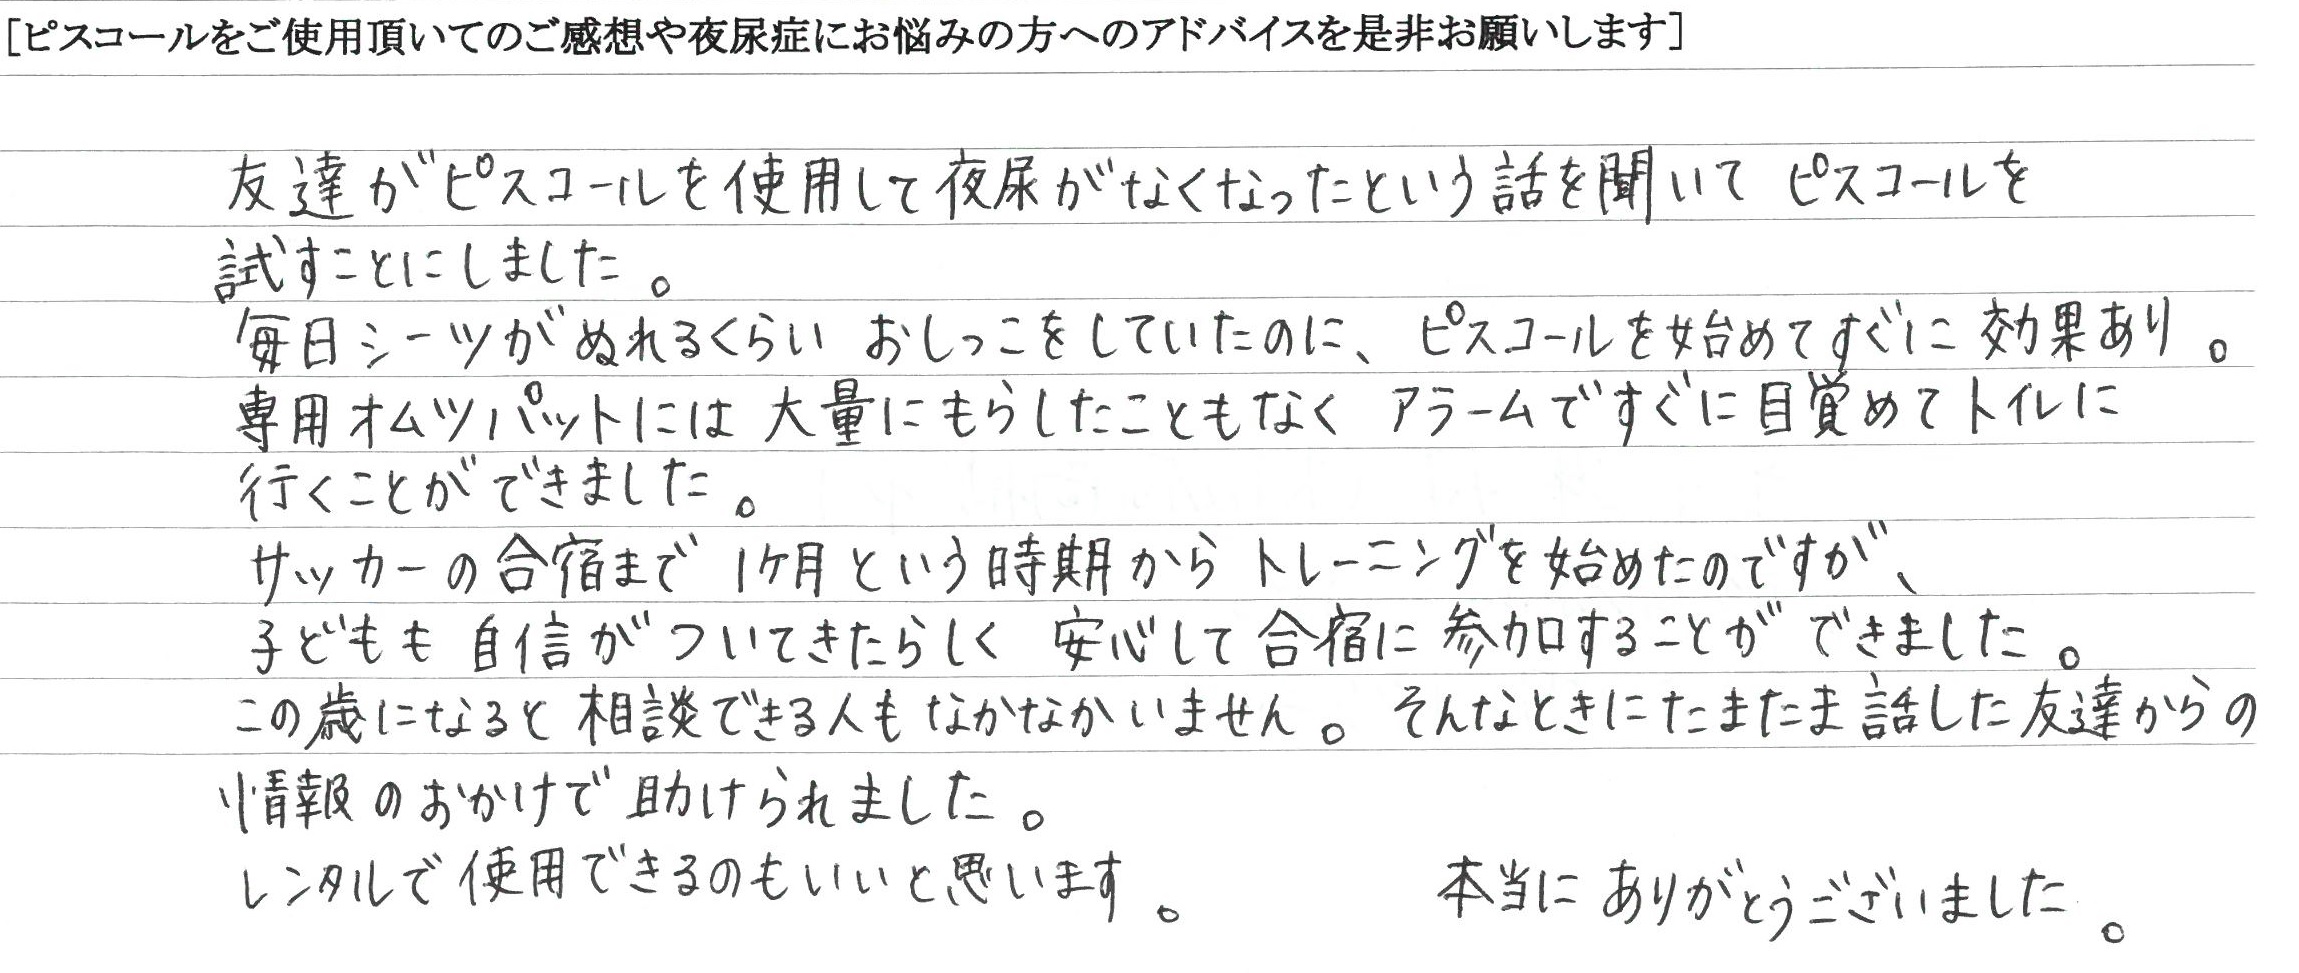 [ピスコールをご使用頂いてのご感想や夜尿症にお悩みの方へのアドバイスを是非お願いします]
友達がピスコールを使用して夜尿がなくなったという話を聞いて ピスコールを
試すことにしました。
毎日シーツがぬれるくらい おしっこをしていたのに、ピスコールを始めてすぐに 効果あり。
専用オムツパットには 大量にもらしたこともなく アラームですぐに目覚めてトイレに
行くことができました。
サッカーの合宿まで 1ヶ月という時期から トレーニングを始めたのですが、
子どもも 自信がついてきたらしく 安心して合宿に参加することができました。
この歳になると相談できる人もなかなかいません。そんなときにたまたま話した友達からの
情報のおかげで助けられました。
レンタルで使用できるのもいいと思います。 本当にありがとうございました。